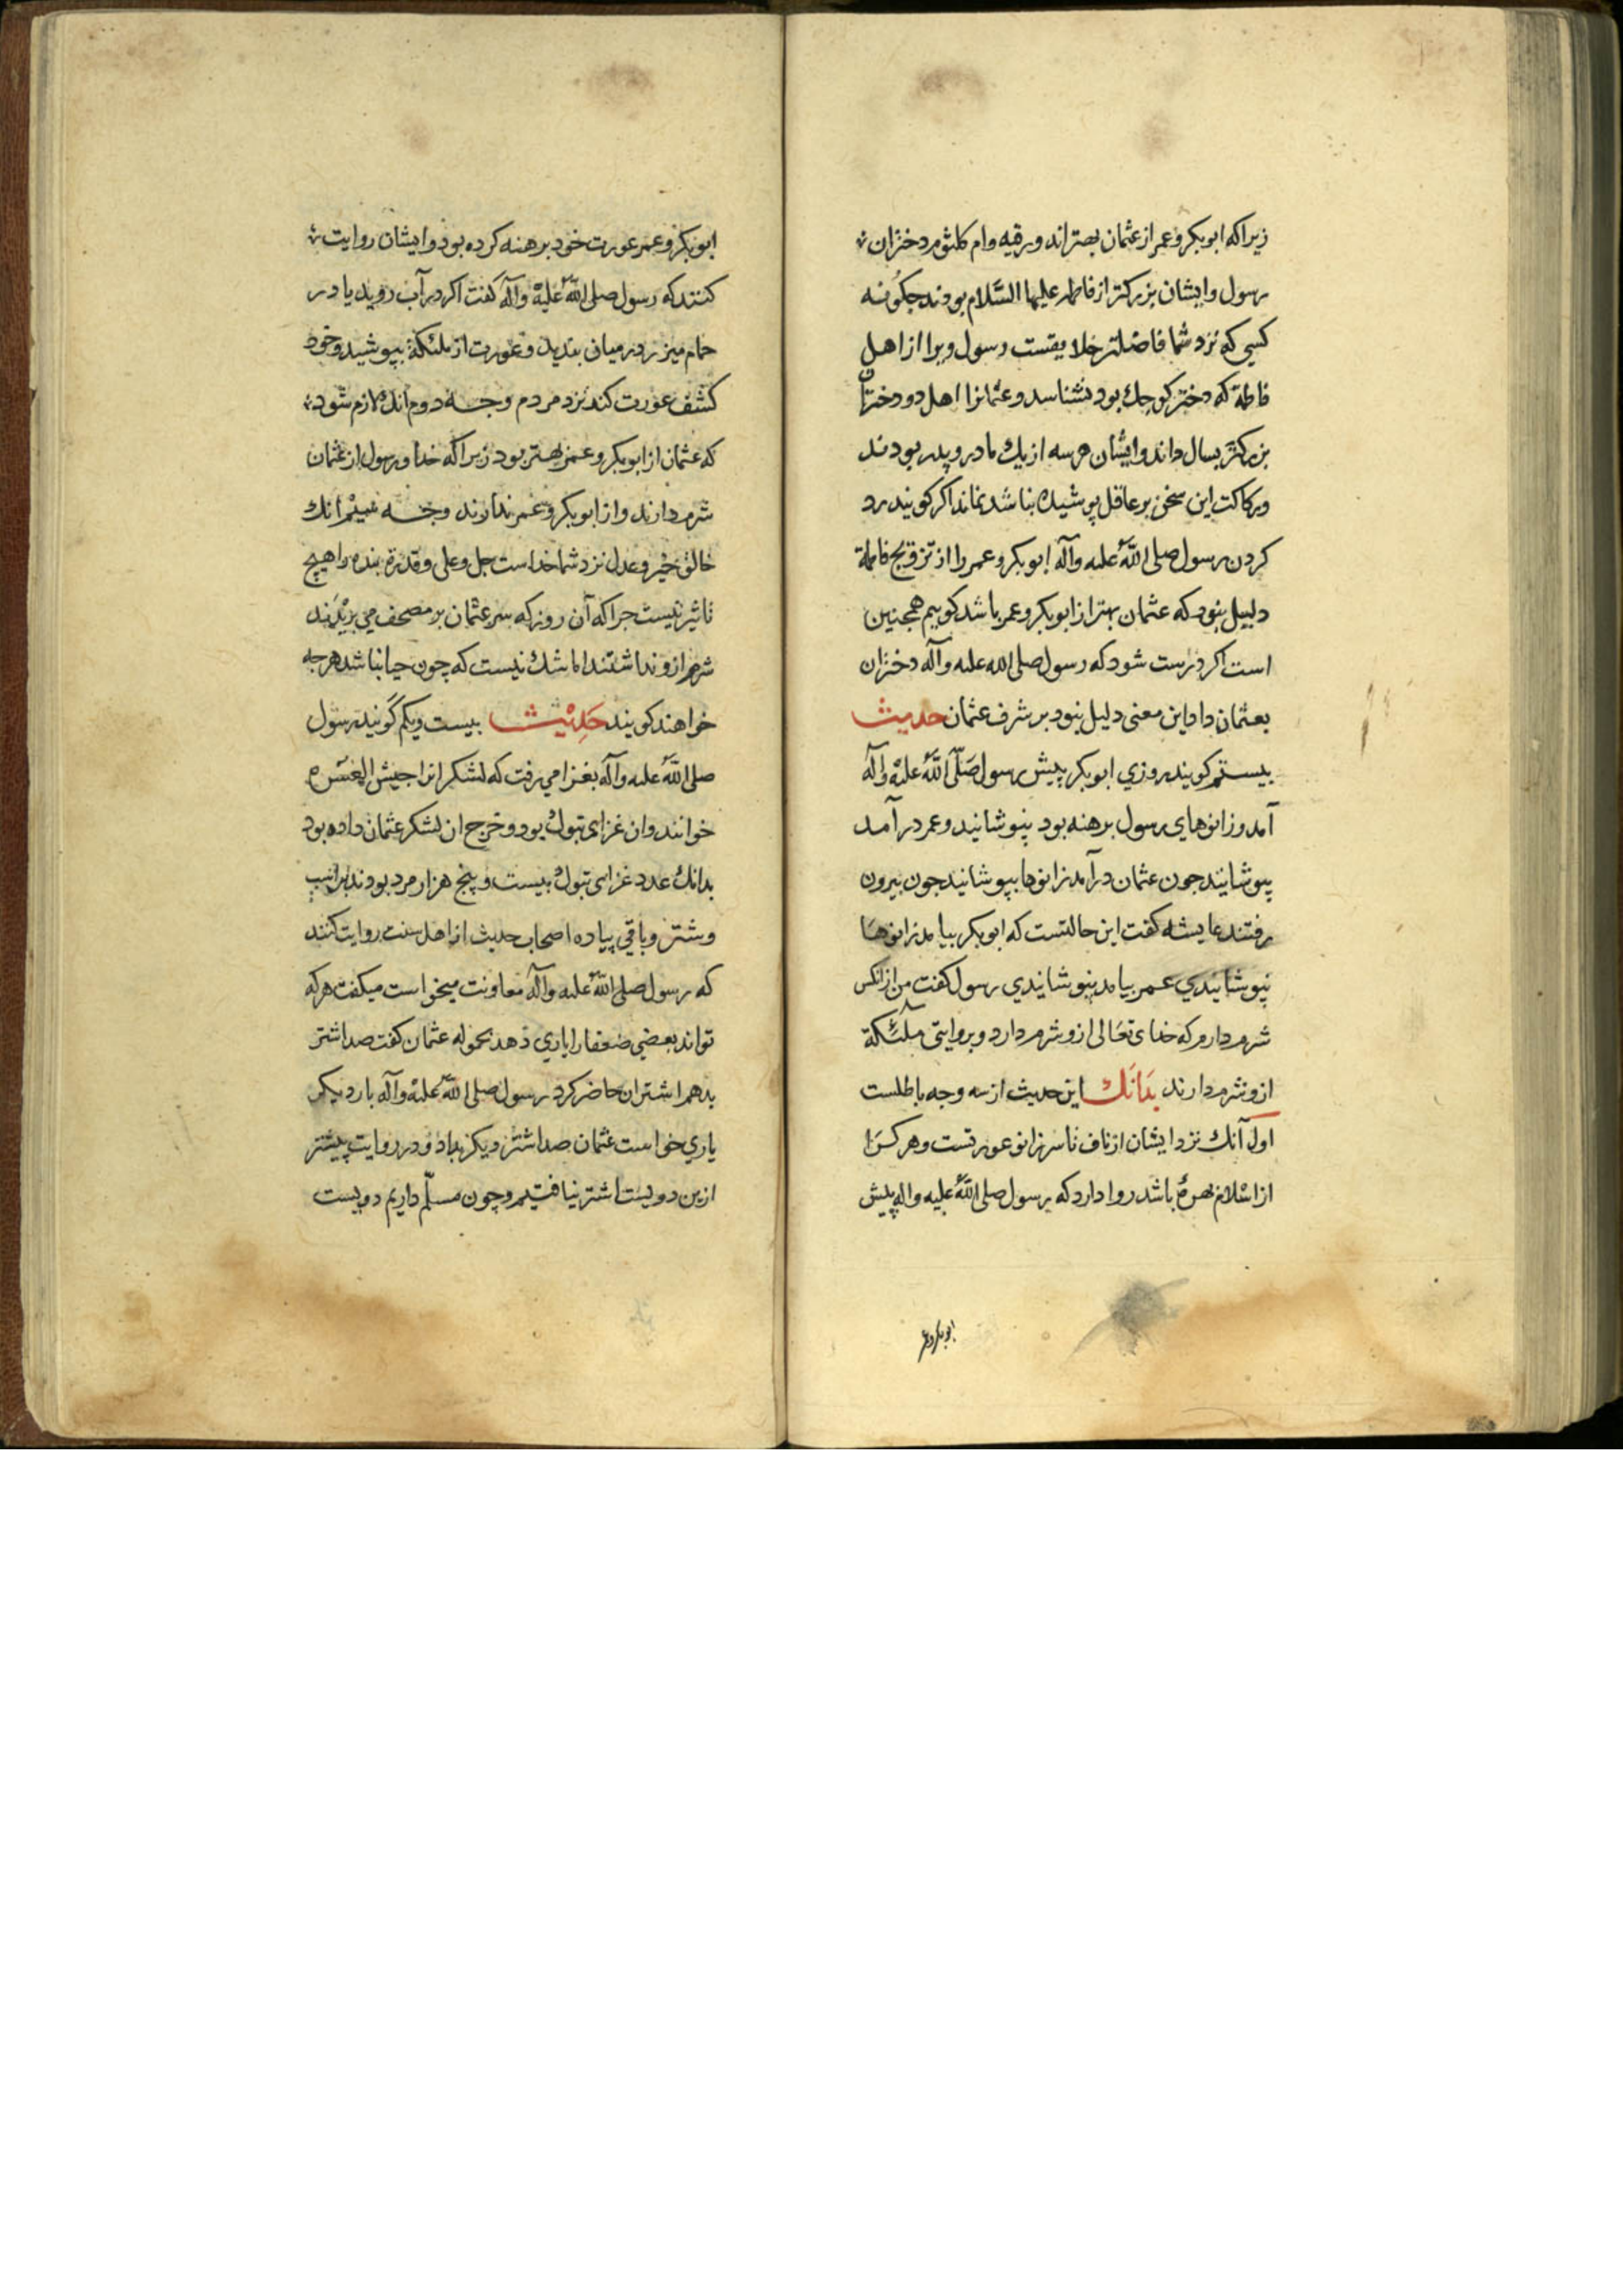 زیرا که ابوبکر و عمر از عثمان بهتراند و رقیه و ام کلثوم دختران
رسول و ایشان بزرکتر از فاطمه علیها السَّلام بودند چکونه
کسی که نزد شما فاضلتر خلایقست رسول ویرا از اهل
فاطمة که دختر کوچك بود نشناسد و عثمانرا اهل دو دختران
بزرکتر بسال داند و ایشان هر سه از یك مادر و پدر بودند
و رکاکت این سخن بر عاقل پوشیده نباشد نماند اکر کویند رد
کردن رسول صلی اللّه علیه وآله ابوبکر و عمر را از تزویج فاطمة
دلیل بنود که عثمان بهتر از ابوبکر و عمر باشد کوییم همچنین
است اکر درست شود که رسول صلی الله علیه وآله دختران
بعثمان داد این معنی دلیل نبود بر شرف عثمان حدیث
بیستم کویند روزی ابوبکر پیش رسول صَلّی اللّه علیه وآله
آمد و زانوهای رسول برهنه بود بنپوشانید و عمر در آمد
بپوشانید چون عثمان درآمد زانوها بپوشانید چون بیرون
رفتند عایشه کفت این حالتست که ابوبکر بیامد زانوها
نپوشانیدی عمر بیامد بنپوشانیدی رسول کفت من از انکس
شرم دارم که خدای تعالی ازو شرم دارد و بروایتی ملئکة
ازو شرم دارند بدَانَك این حدیث از سه وجه باطلست
اول آنك نزد ایشان از ناف تا سر زانو عورتست و هر کسرا
از اسلام بهرهٔ باشد روا دارد که رسول صلی اللّه علیه واله پیش
ابوبکر و عمر
ابوبکر و عمر عورت خود برهنه کرده بود و ایشان روایت
کنند که رسول صلی اللّه علیه وآله کفت اکر در آب روید یا در
حمام میزر در میان بندید و عورت از ملئکة بپوشید و خود
کشف عورت کند نزد مردم وجه دوم آنك لازم شود
که عثمان از ابوبکر و عمر بهتر بود زیرا که خدا و رسول از عثمان
شرم دارند و از ابوبکر و عمر ندارند وجه سیم آنك
خالق خیر و عدل نزد شما خداست جل وعلی و قدرة بنده را هیچ
تاثیر نیست چرا که آن روز که سر عثمان بر مصحف می بریدند
شرم ازو نداشتند اما شك نیست که چون حیا نباشد هر چه
خواهند کویند حَدِیْث بیست ویکم کَویند رسول
صلی اللّه علیه وآله بغزا می رفت که لشکر انرا جیش العسره
خوانند وان غزای تبوك بود و خرج ان لشکر عثمان داده بود
بدانك عدد غزای تبوك بیست و پنج هزار مرد بودند بر اسب
و شتر و باقی پیاده اصحاب حدیث از اهل سنت روایت کنند
که رسول صلی اللّه علیه وآله معاونت میخواست میکفت هر که
تواند بعضی ضعفا را یاری دهد بحموله عثمان کفت صد اشتر
بدهم اشتران حاضر کرد رسول صلی اللّه علیه وآله بار دیکر
یاری خواست عثمان صد اشتر دیکر بداد و در روایت پیشتر
ازین دویست اشتر نیافتیم و چون مسلّم داریم دویست